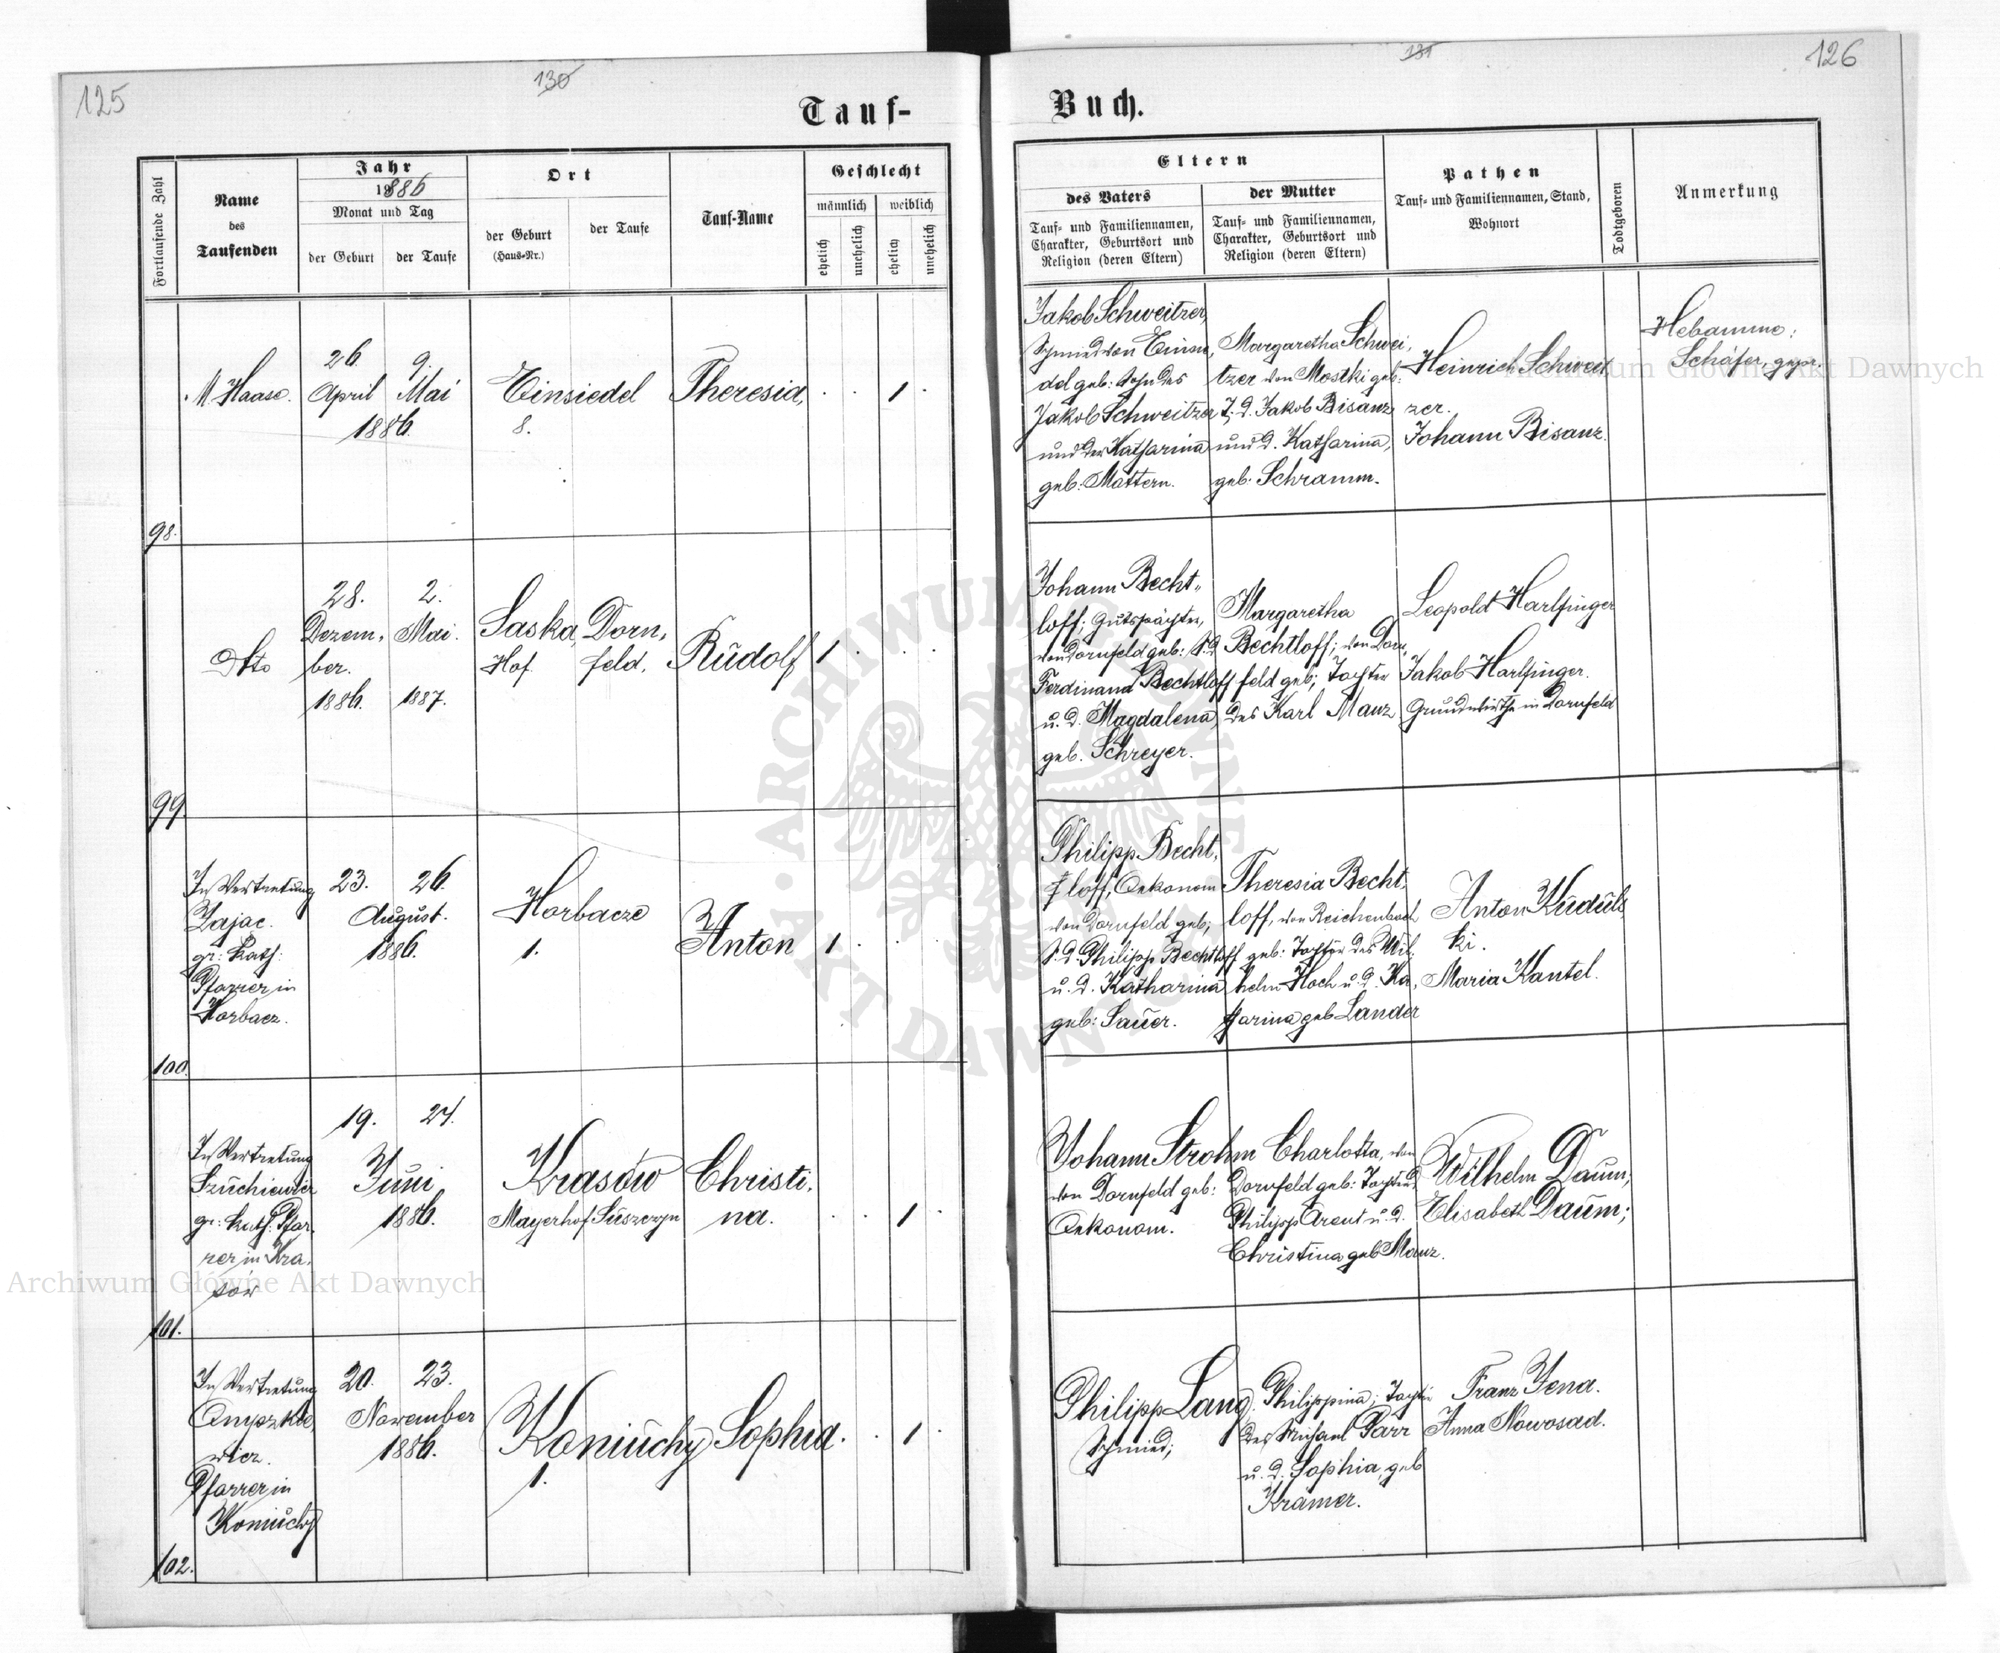 125
130
Tauf-
Fortlaufende Zahl
Name
des
Taufenden
Jahr
1886
Monat und Tag
der Geburt
der Taufe
Ort
der Geburt
(Haus-Nr.)
der Taufe
Tauf-Name
Geschlecht
männlich
weiblich
ehelich
unehelich
ehelich
unehelich
M Haase.
26.
April
9.
Mai
1886.
Einsiedel
8.
Theresia,
1
98.
Dtto
28.
Dezem-
ber.
1886.
2.
Mai.
1887.
Saska
Hof
Dorn-
feld.
Rudolf
1
99.
In Vertretung
Zajac.
gr: Kath:
Pfarrer in
Horbacz.
23.
26.
August.
1886.
Horbacze
1.
Anton
1
100.
In Vertretung
gr: Kath: Pfar-
rer in Kra-
sów
19.
24.
Juni
1886.
Krasów
Mayerhof
Christi-
na.
1
101.
In Vertretung
Pfarrer in
Koniuchy
20.
23.
November
1886.
Koniuchy
1.
Sophia.
1
102.
131
126
Buch.
Eltern
des Vaters
Tauf- und Familiennamen,
Charakter, Geburtsort und
Religion (deren Eltern)
der Mutter
Tauf- und Familiennamen,
Charakter, Geburtsort und
Religion (deren Eltern)
Pathen
Tauf- und Familiennamen, Stand,
Wohnort
Todtgeboren
Anmerkung
Jakob Schweitzer,
Schmied von Einsie-
del geb: Sohn des
Jakob Schweitzer
und der Katharina
geb: Mattern.
Margaretha Schwei-
tzer von Mostki geb:
T. d. Jakob Bisanz
und d. Katharina,
geb. Schramm.
Heinrich Schweit
zer.
Johann Bisanz.
Hebamme:
Schäfer, gepr:
Johann Becht-
loff; Gutspächter,
von Dornfeld geb: S. d.
Ferdinand Bechtloff
u. d. Magdalena
geb. Schreyer.
Margaretha
Bechtloff; von Dorn-
feld geb; Tochter
des Karl Manz
Leopold Harlfinger
Jakob Harlfinger.
Grundwirthe in Dornfeld
Philipp Becht-
loff, Oekonom
von Dornfeld geb;
S. d. Philipp Bechtloff
u. d. Katharina
geb: Sauer.
Theresia Becht-
loff, von Reichenbach
geb: Tochter des Wil-
helm Hoch u. d. Ka-
tharina geb Lander
Anton Kuduls
ki.
Maria Kantel.
Johann Strohm
von Dornfeld geb:
Oekonom.
Charlotta, von
Dornfeld geb: Tochter d.
Philipp Arent u. d.
Christina geb Manz.
Wilhelm Daum;
Elisabeth Daum;
Philipp Lang.
Schmied;
Philippina; Tochter
des Michael Parr
u. d. Sophia, geb
Krämer.
Franz Jena.
Anna Nowosad.
Archiwum Główne Akt Dawnych
Archiwum Główne Akt Dawnych
ARCHIWUM GŁÓWNE AKT DAWNYCH